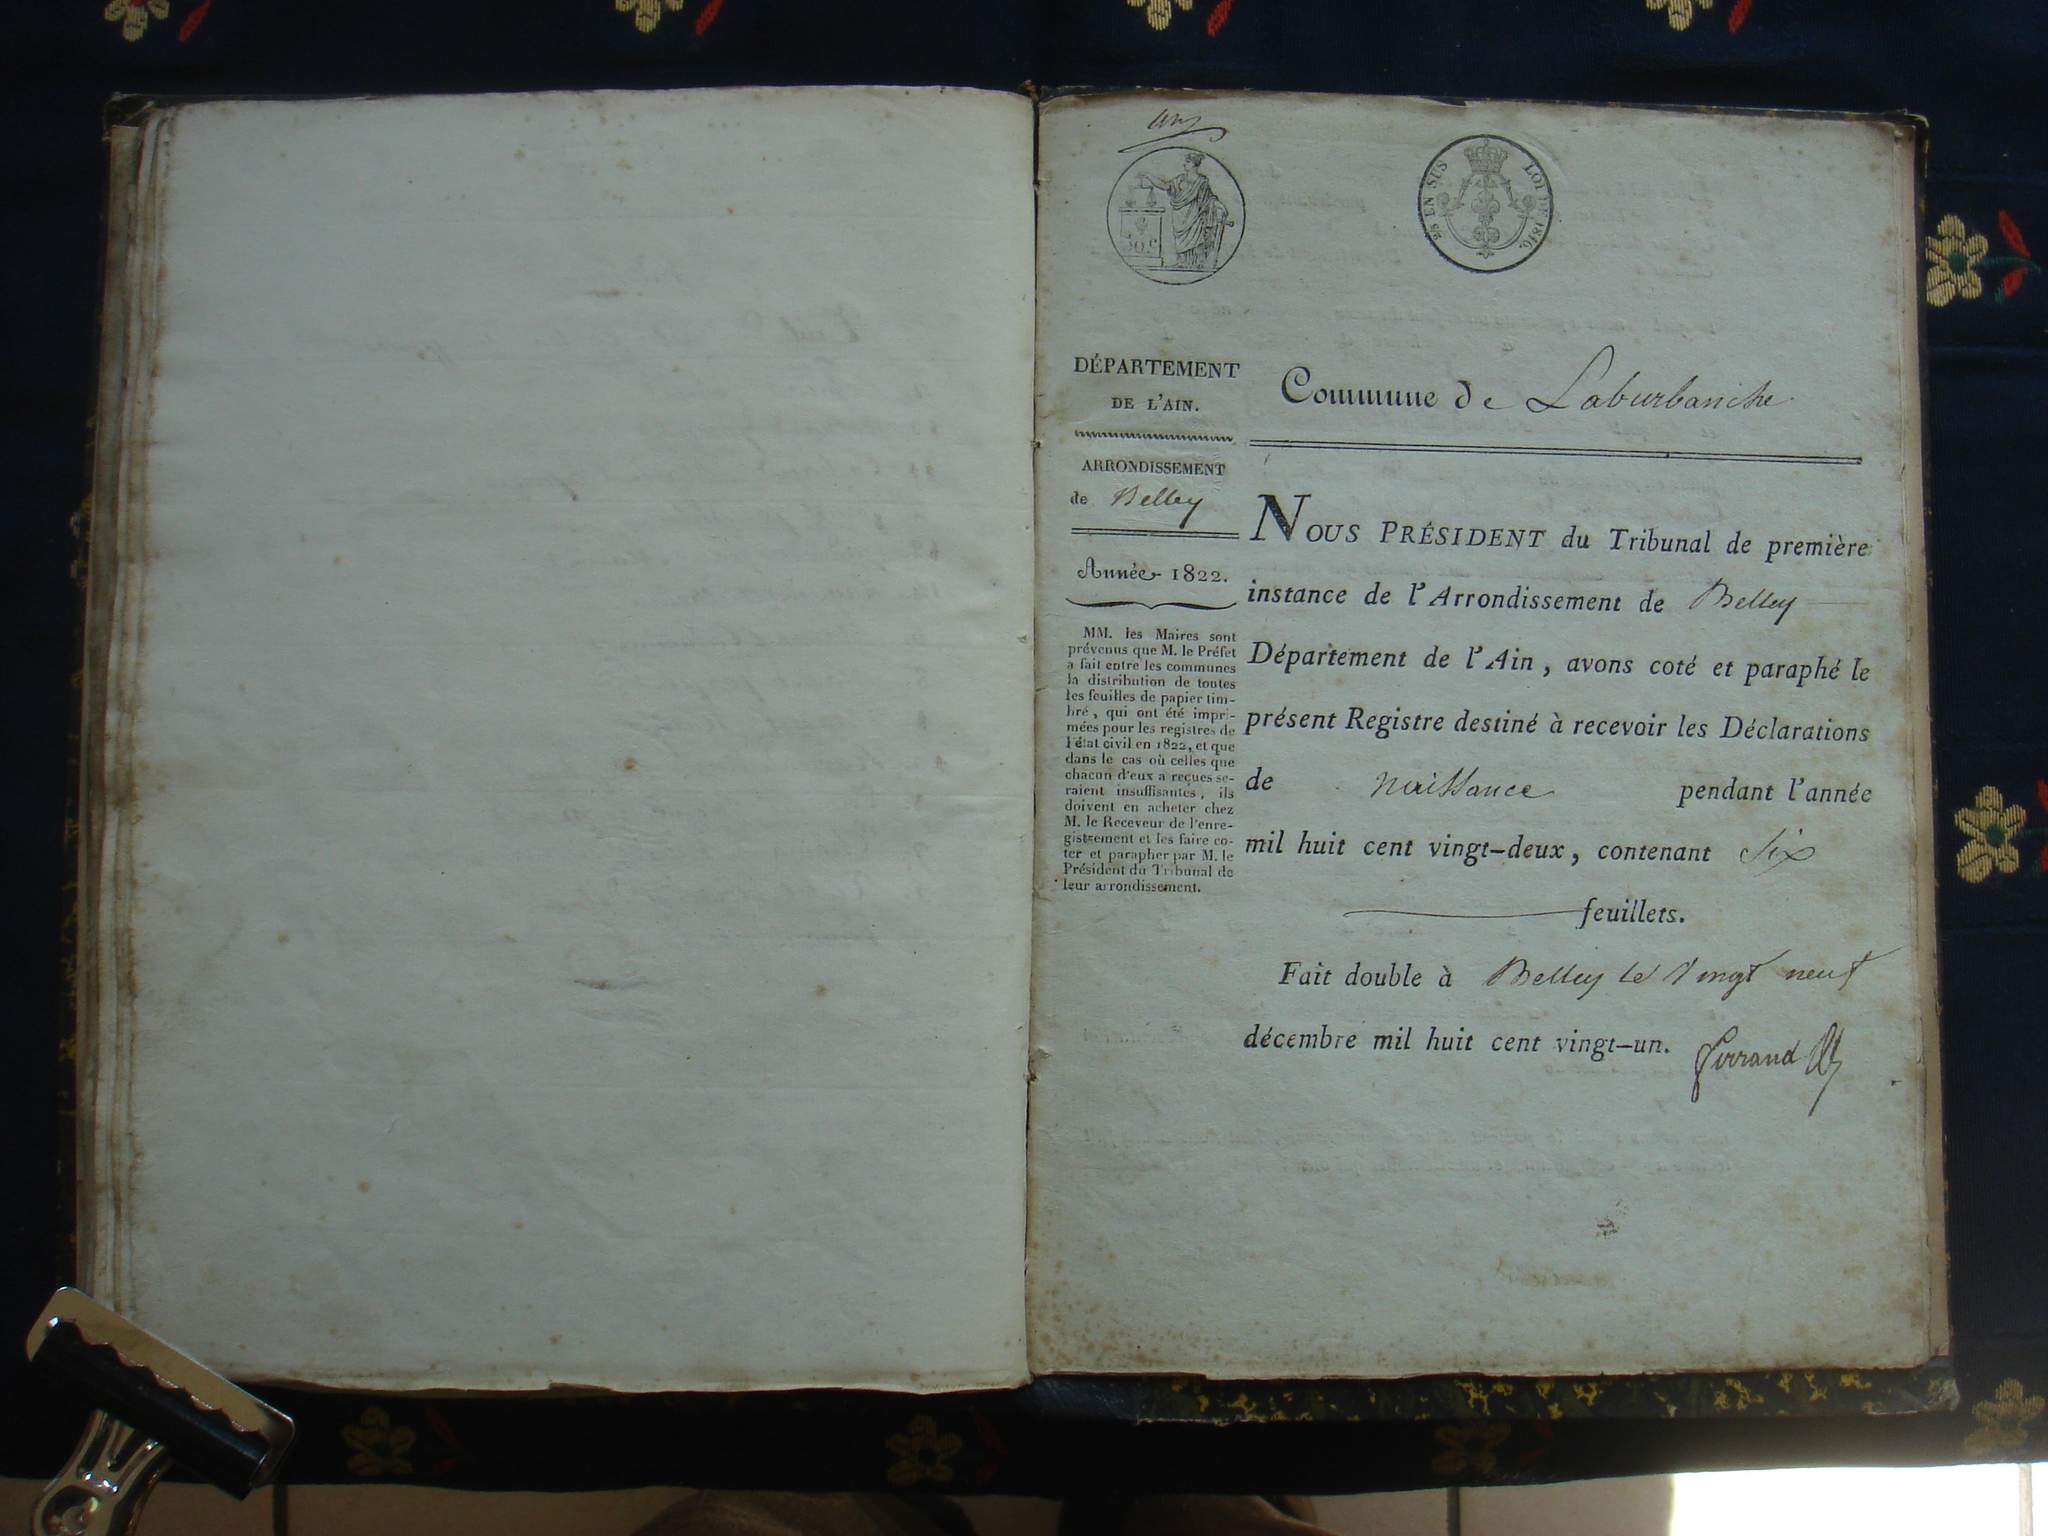 25 EN SUS LOI DE 1816.
50 C
DÉPARTEMENT
DE L'AIN.
ARRONDISSEMENT
de Belley
Année 1822.
MM. les Maires sont
prévenus que M. le Préfet
a fait entre les communes
la distribution de toutes
les feuilles de papier tim-
bré, qui ont été impri-
mées pour les registres de
l'état civil en 1822, et que
dans le cas où celles que
chacun d'eux a reçues se-
raient insuffisantes, ils
doivent en acheter chez
M. le Receveur de l'enre-
gistrement et les faire co-
ter et parapher par M. le
Président du Tribunal de
leur arrondissement.
Commune de Laburbanche
NOUS PRÉSIDENT du Tribunal de première
instance de l'Arrondissement de Belley
Département de l'Ain, avons coté et paraphé le
présent Registre destiné à recevoir les Déclarations
de naissance pendant l'année
mil huit cent vingt-deux, contenant six
feuillets.
Fait double à Belley le vingt neuf
décembre mil huit cent vingt-un.